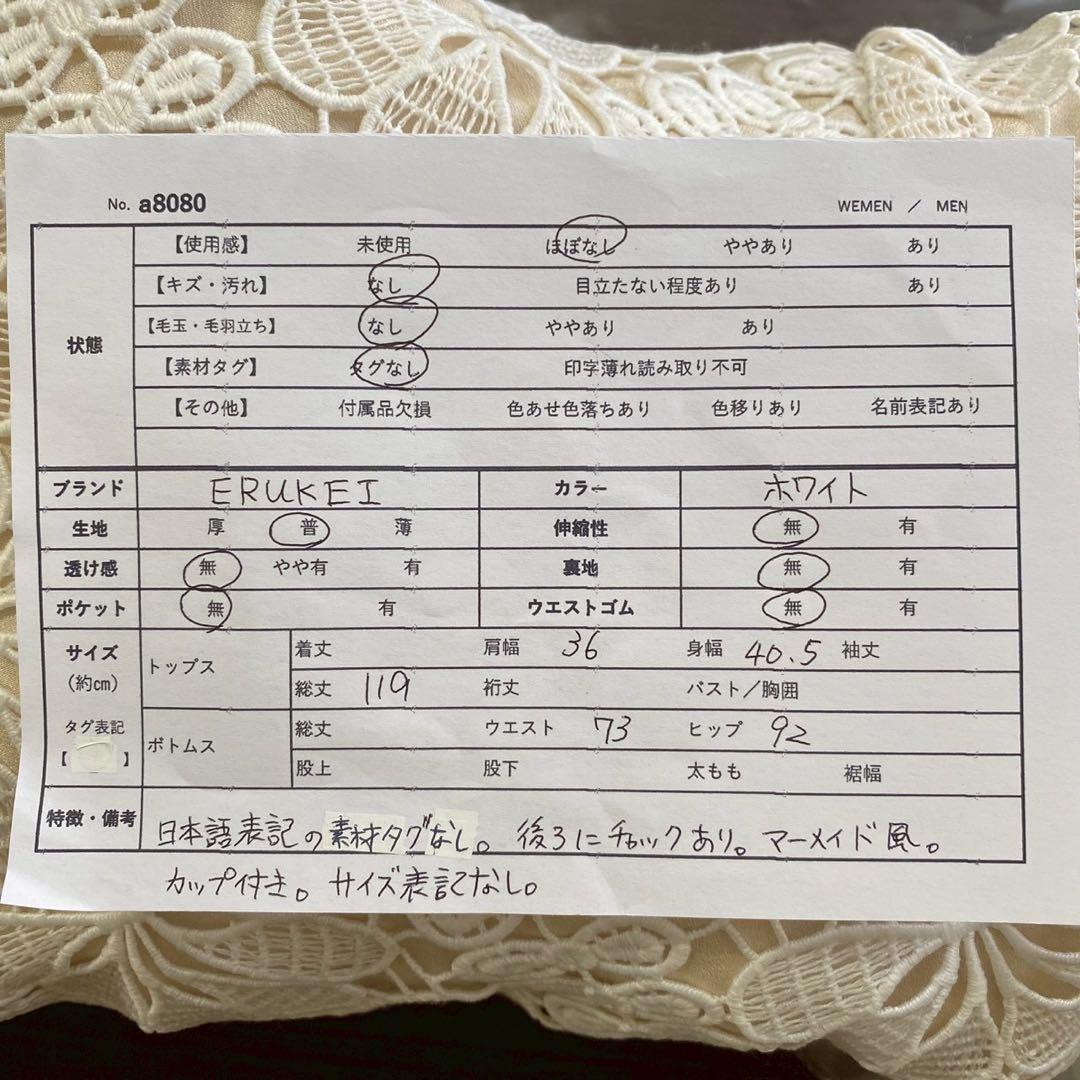 No. a8080 WEMEN / MEN
状態
【使用感】 未使用 ほぼなし ややあり あり
【キズ・汚れ】 なし 目立たない程度あり あり
【毛玉・毛羽立ち】 なし ややあり あり
【素材タグ】 タグなし 印字薄れ読み取り不可
【その他】 付属品欠損 色あせ色落ちあり 色移りあり 名前表記あり
ブランド ERUKEI カラー ホワイト
生地 厚 普 薄 伸縮性 無 有
透け感 無 やや有 有 裏地 無 有
ポケット 無 有 ウエストゴム 無 有
サイズ (約cm) タグ表記 【 】
トップス 着丈 肩幅 36 身幅 40.5 袖丈
総丈 119 裄丈 バスト／胸囲
ボトムス 総丈 ウエスト 73 ヒップ 92
股上 股下 太もも 裾幅
特徴・備考 日本語表記の素材タグなし。後ろにチャックあり。マーメイド風。
カップ付き。サイズ表記なし。